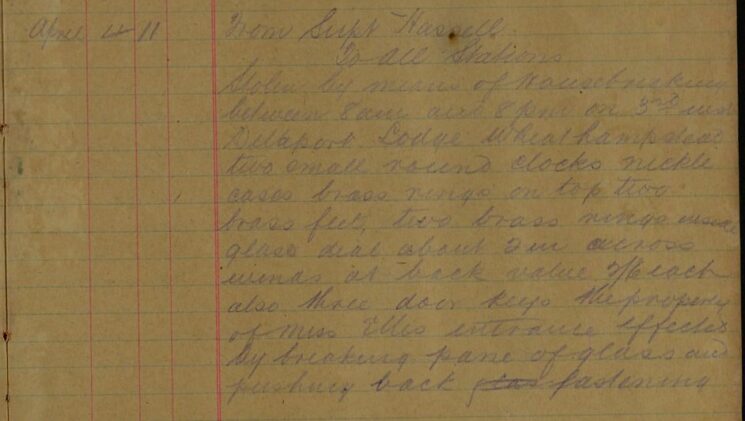 April 4 11 From Supt Hassell
To all Stations
Stolen by means of Housebreaking
between 8 am and 8 pm on 3rd inst
Delaport Lodge Wheathampstead
two small round clocks nickle
cases brass rings on top two
brass feet, two brass rings inside
glass dial about 3 in across
winds at back value each
also three door keys the property
of Miss Ellis entrance effected
by breaking pane of glass and
pushing back fastening